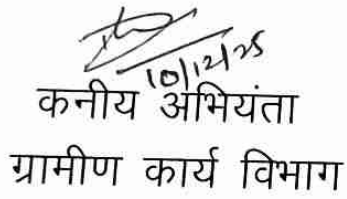 10/12/25
कनीय अभियंता
ग्रामीण कार्य विभाग